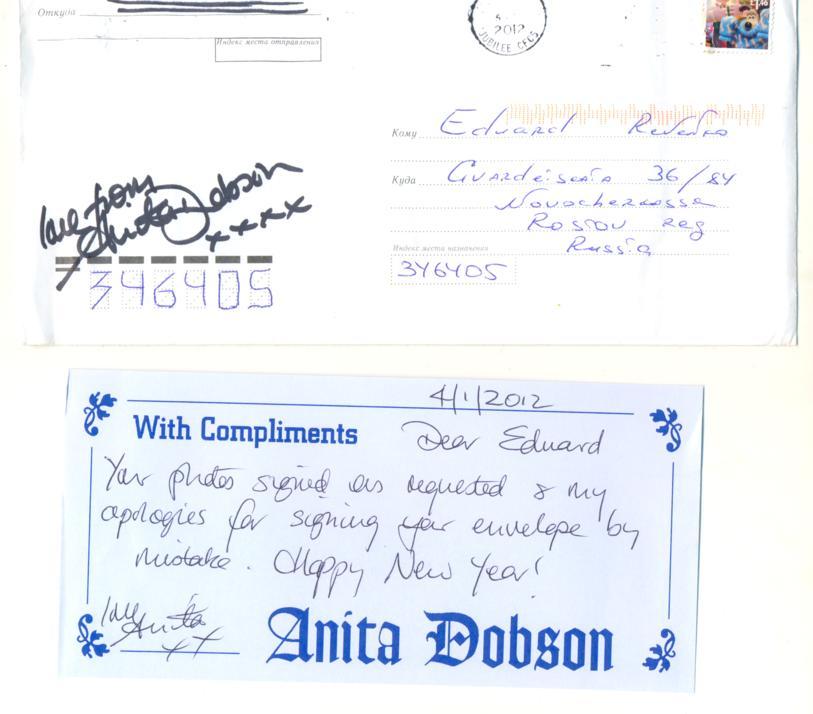 Откуда
Индекс места отправления
5
2012
JUBILEE CFCS
Кому Eduard
Куда Guardeiskaia 36/84
Novocherkassk
Rostov Reg
Russia
Индекс места назначения
346405
love from
Anita Dobson
xxxx
346405
4/1/2012
With Compliments Dear Eduard
Your photos signed as requested & my
apologies for signing your envelope by
mistake. Happy New Year!
love
Anita
xx
Anita Dobson